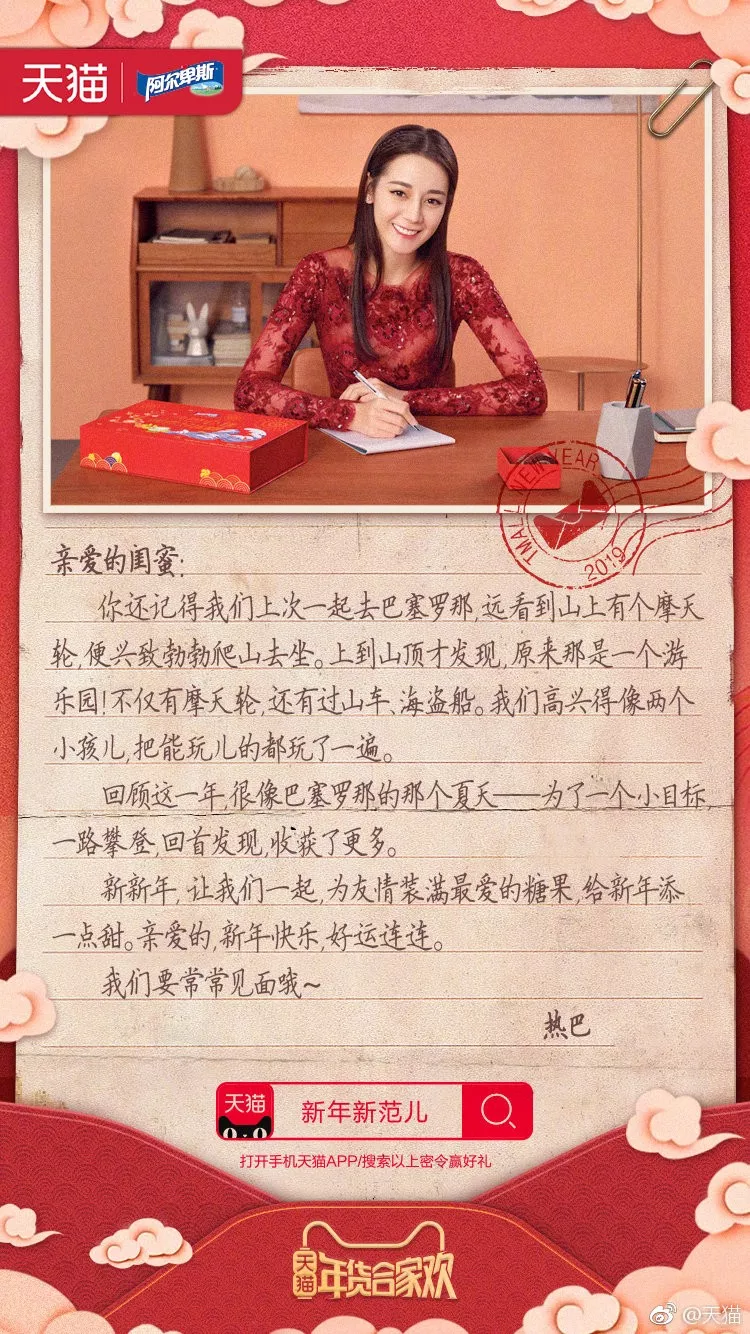 天猫
阿尔卑斯
TMALL NEW YEAR
2019
亲爱的闺蜜:
你还记得我们上次一起去巴塞罗那,远看到山上有个摩天
轮,便兴致勃勃爬山去坐。上到山顶才发现,原来那是一个游
乐园!不仅有摩天轮,还有过山车、海盗船。我们高兴得像两个
小孩儿,把能玩儿的都玩了一遍。
回顾这一年,很像巴塞罗那的那个夏天——为了一个小目标,
一路攀登,回首发现,收获了更多。
新新年,让我们一起,为友情装满最爱的糖果,给新年添
一点甜。亲爱的,新年快乐,好运连连。
我们要常常见面哦~
热巴
天猫
新年新范儿
打开手机天猫APP/搜索以上密令赢好礼
天猫
年货合家欢
@天猫